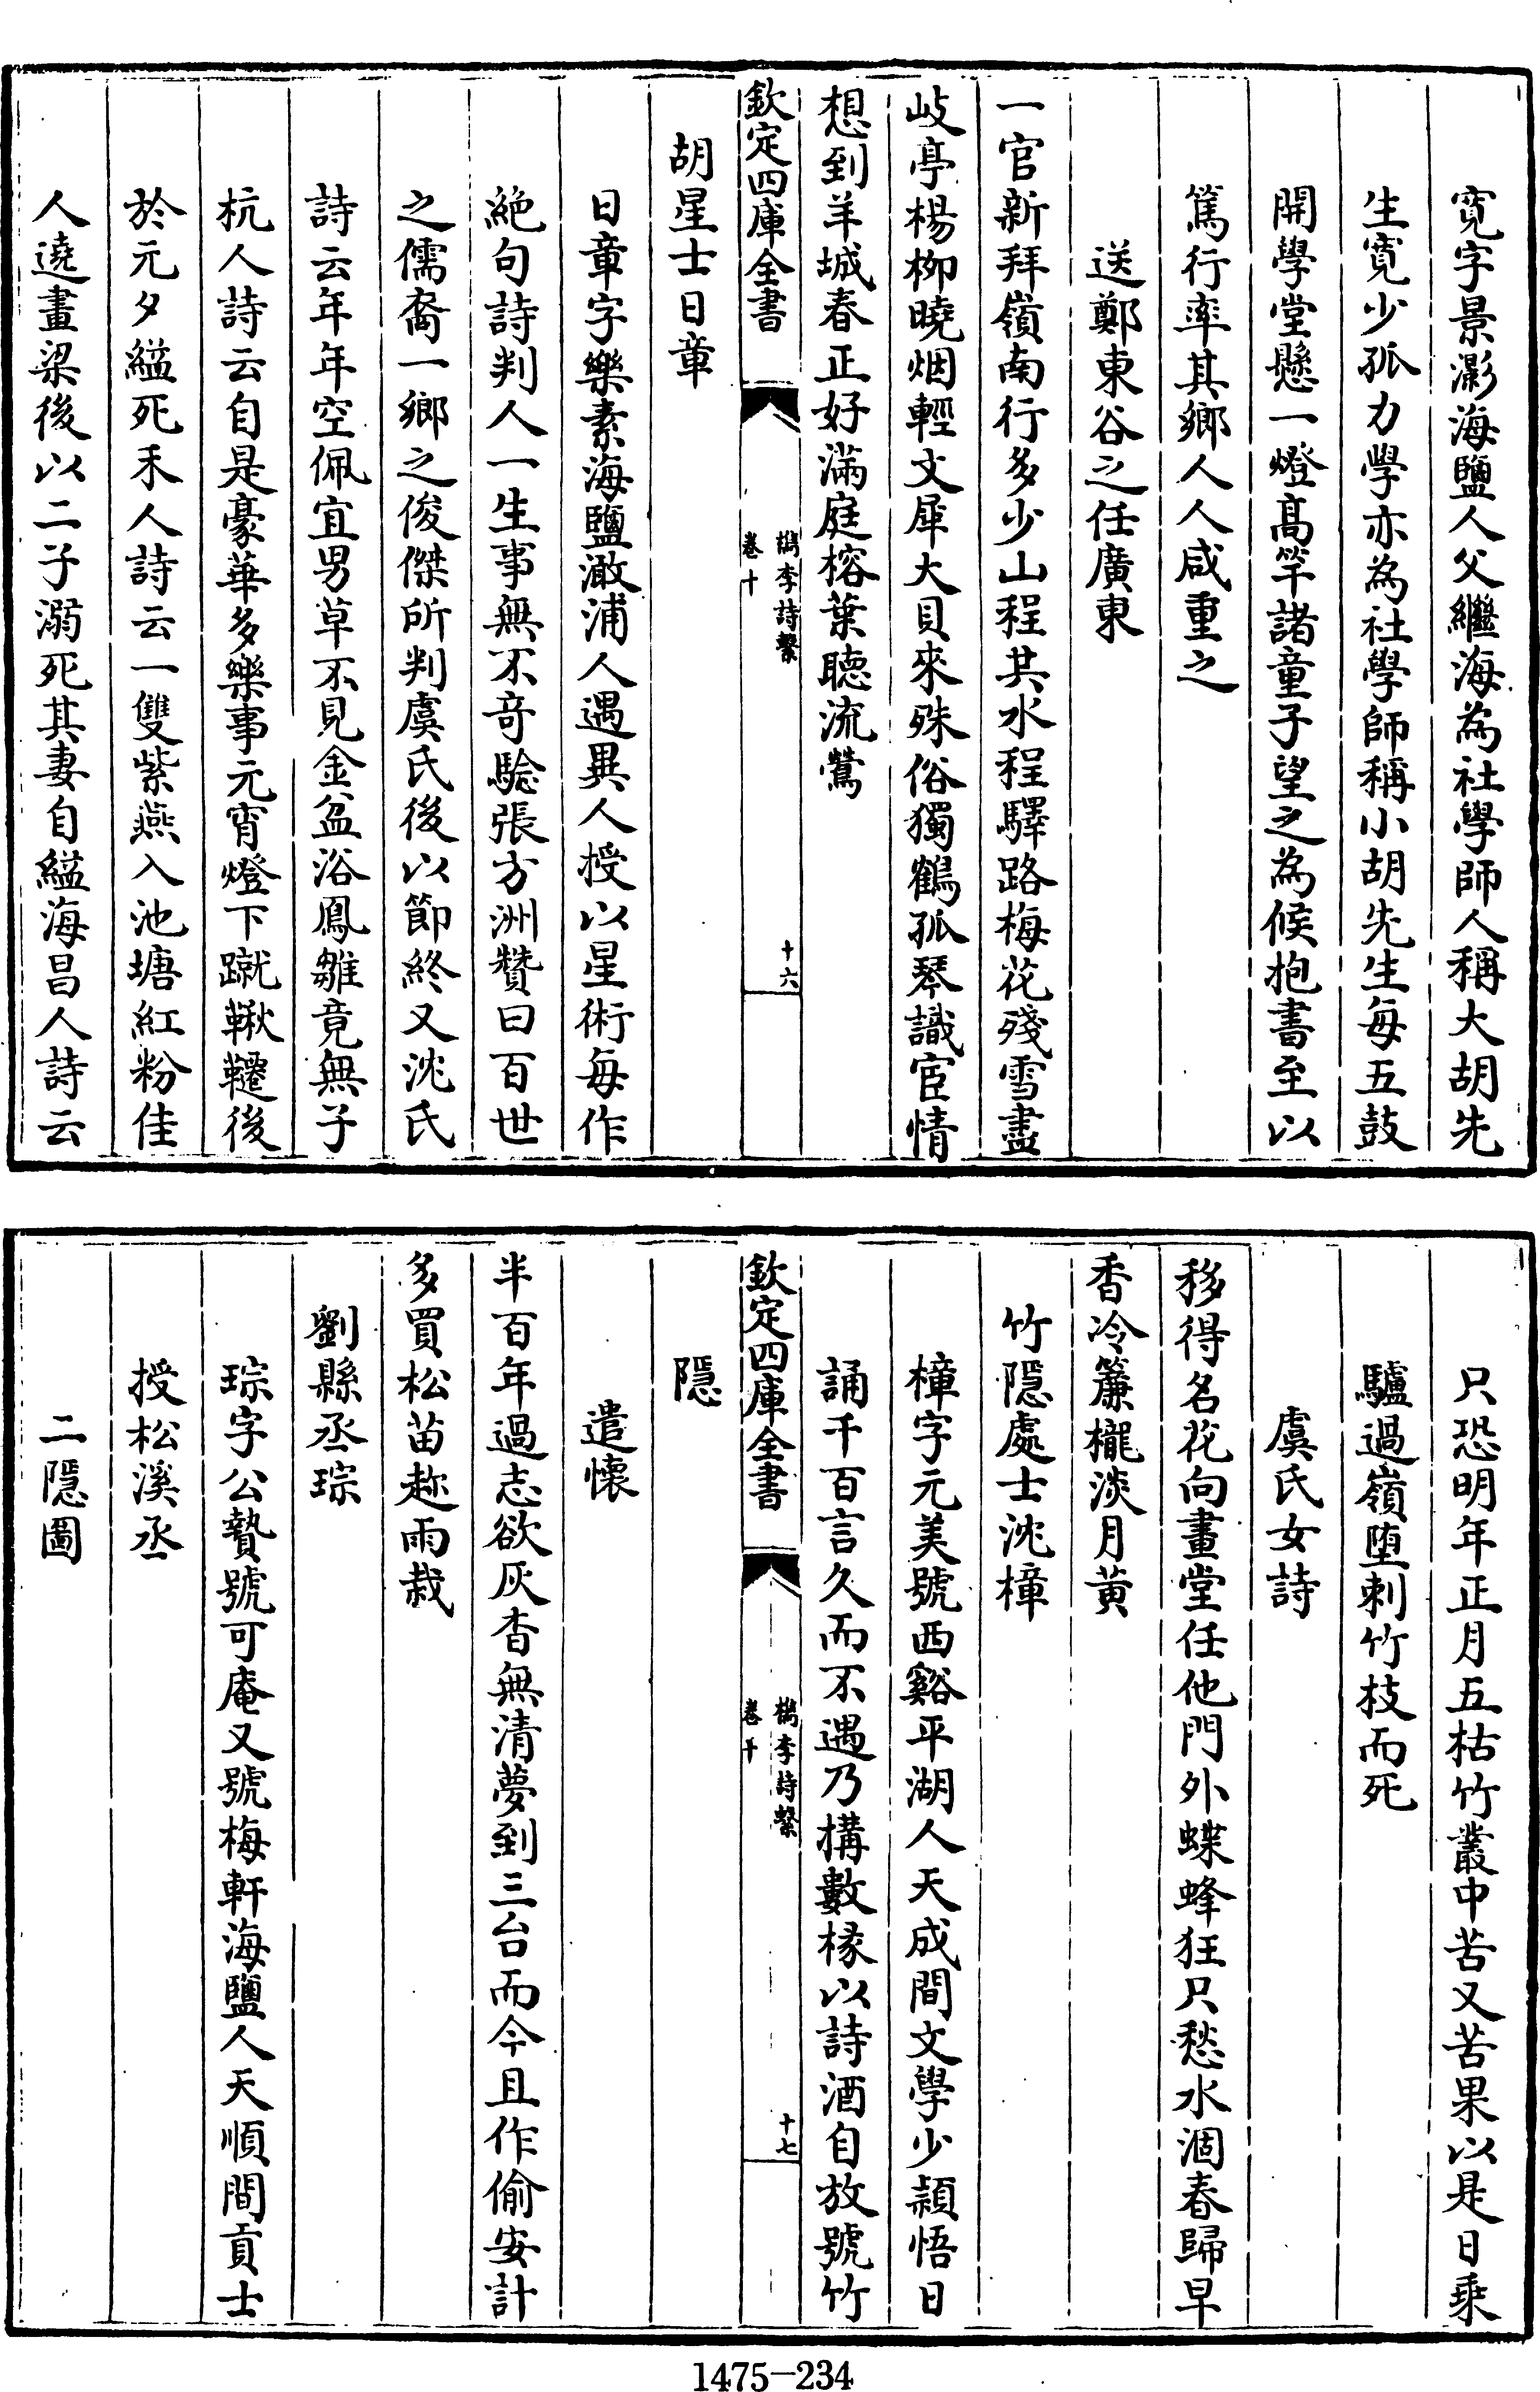 寛字景瀞海鹽人父繼海為社學師人稱大胡先
生寛少孤力學亦為社學師稱小胡先生每五鼓
開學堂懸一燈髙竿諸童子望之為候抱書至以
篤行率其鄉人人咸重之
送鄭東谷之任廣東
一官新拜嶺南行多少山程共水程驛路梅花殘雪盡
岐亭楊栁曉烟輕文犀大貝來殊俗獨鶴孤琴識宦情
想到羊城春正好滿庭榕葉聴流鶯
欽定四庫全書
檇李詩繫
卷十
十六
胡星士日章
日章字樂素海鹽澉浦人遇異人授以星術每作
絶句詩判人一生事無不竒驗張方洲贊曰百世
之儒裔一鄉之俊傑所判虞氏後以節終又沈氏
詩云年年空佩宜男草不見金盆浴鳳雛竟無子
杭人詩云自是豪華多樂事元宵燈下蹴鞦韆後
於元夕縊死禾人詩云一雙紫燕入池塘紅粉佳
人遶畫梁後以二子溺死其妻自縊海昌人詩云
只恐明年正月五枯竹叢中苦又苦果以是日乘
驢過嶺墮刺竹枝而死
虞氏女詩
移得名花向畫堂任他門外蝶蜂狂只愁水涸春歸早
香冷簾櫳淡月黃
竹隠處士沈樟
樟字元美號西谿平湖人天成間文學少頴悟日
誦千百言久而不遇乃構數椽以詩酒自放號竹
欽定四庫全書
檇李詩繫
卷十
十七
隠
遣懐
半百年過志欲灰杳無清夢到三台而今且作偷安計
多買松苗趂雨栽
劉縣丞琮
琮字公贄號可庵又號梅軒海鹽人天順間貢士
授松溪丞
二隠圖
1475-234